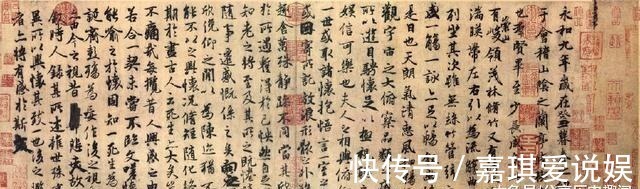 永和九年歲在癸丑暮
于會稽山陰之蘭亭
也群賢畢至少長咸
有峻領茂林脩竹又有
湍暎帶左右引以為流
列坐其次雖無絲竹管
盛一觴一詠亦足以
是日也天朗氣清惠風
觀宇宙之大俯察品
所以遊目騁懷足以極
娛信可樂也夫人之相與俯
一世或取諸懷抱悟言一室
或因寄所託放浪形骸之
趣舍萬殊靜躁不同當其欣
於所遇暫得於己怏然自足
知老之將至及其所之既惓
隨事遷感慨係之矣向之
欣俛仰之閒以為陳迹
能不以之興懷況脩短隨化
期於盡古人云死生亦大矣
痛哉每攬昔人興感之由
若合一契未嘗不臨文嗟悼
能喻之於懷固知一死生為
誕齊彭殤為妄作後之視
今之視昔悲夫故
敘時人錄其所述雖世殊
異所以興懷其致一也後之
者亦將有感於斯
快传号/嘉琪爱说娱